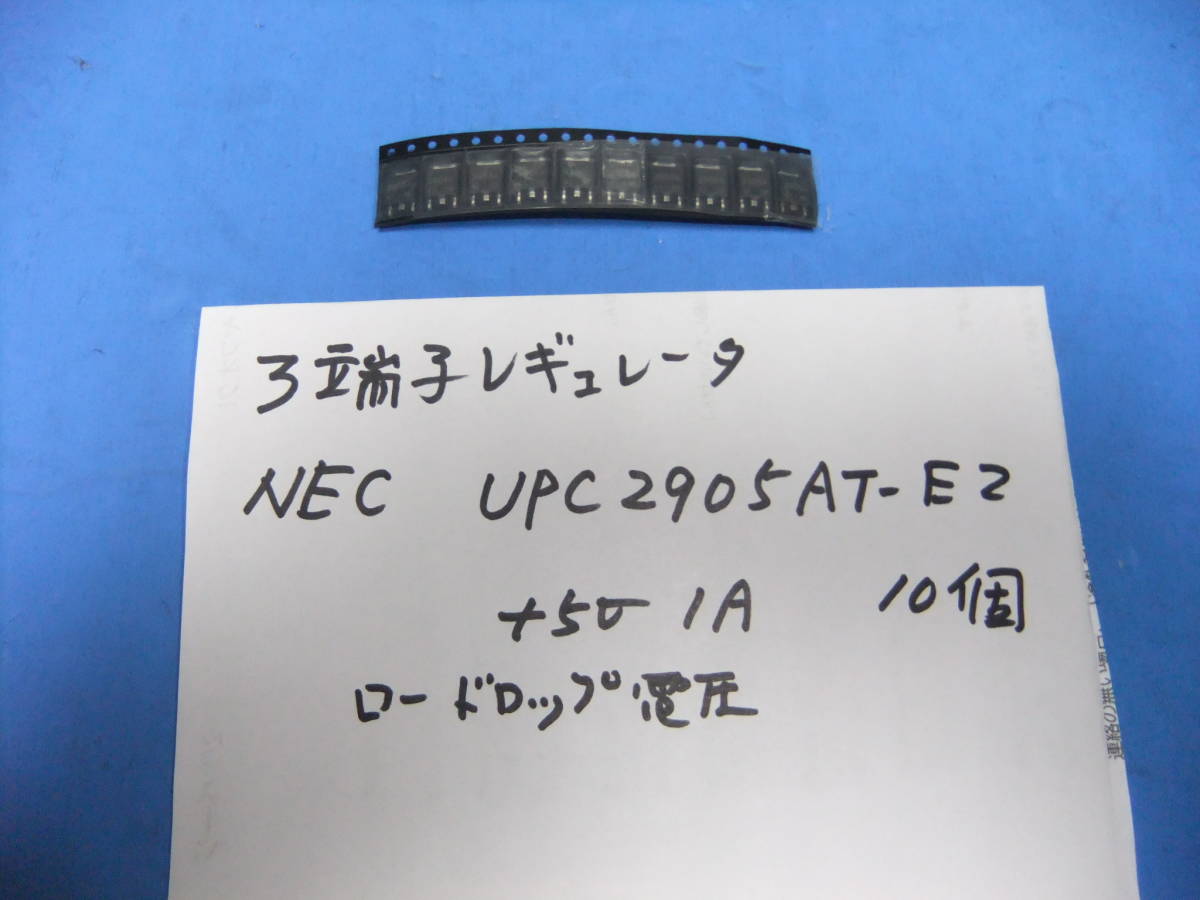 3端子レギュレータ
NEC UPC2905AT-E2
+5V 1A 10個
ロードロップ電圧